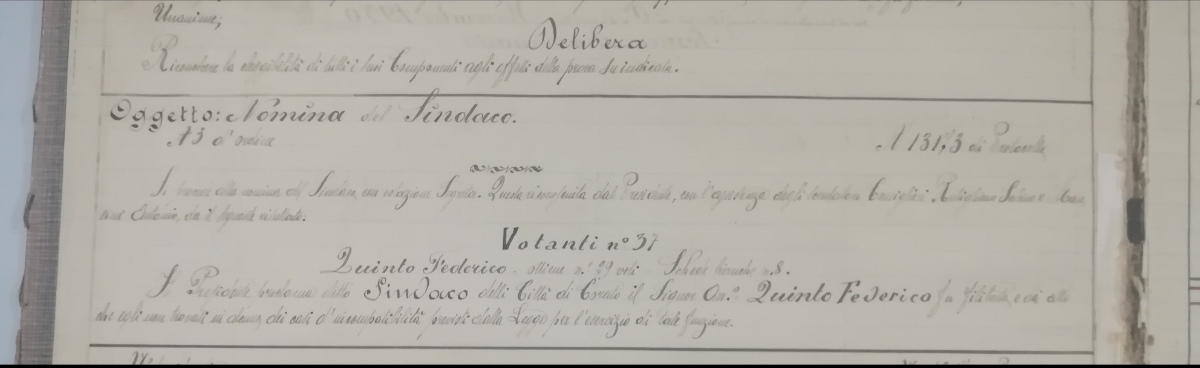 Unanime;
Delibera
Riconoscere la eleggibilità di tutti i suoi Componenti agli effetti della prova su indicata.
Oggetto: Nomina del Sindaco.
N 3 d'ordine
N 13173 di Protocollo
Si procede alla nomina del Sindaco, con votazione segreta. Questa eseguita dal Presidente, con l'assistenza degli scrutatori Consiglieri
Antonio, da il seguente risultato.
Votanti n° 37
Quinto Federico - ottiene n.° 29 voti - Schede bianche n. 8.
Il Presidente proclama eletto Sindaco della Città di il Signor On.e Quinto Federico fu
che egli non trovasi in alcuno dei casi d'incompatibilità previsti dalla Legge per l'esercizio di tale funzione.